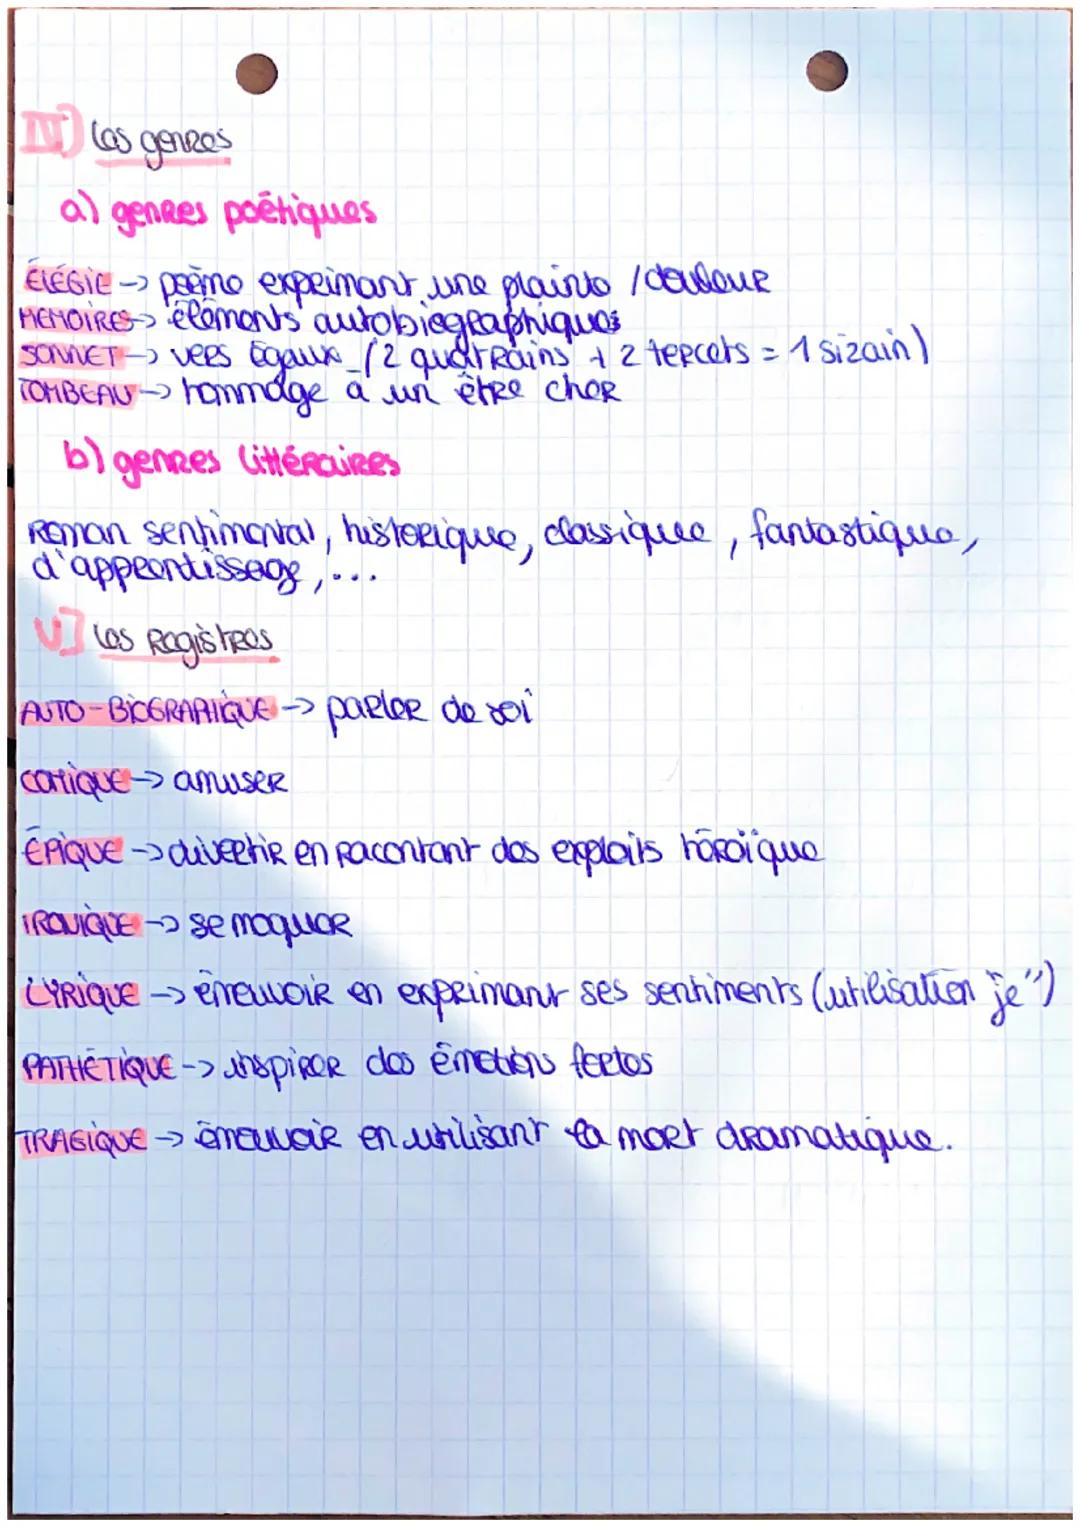 IV] Les genres
a) genres poétiques
ÉLÉGIE -> poème exprimant une plainte / douleur
MEMOIRES -> éléments autobiographiques
SONNET -> vers égaux (2 quatrains + 2 tercets = 1 sizain)
TOMBEAU -> hommage à un être cher
b) genres littéraires
Roman sentimental, historique, classique, fantastique,
d'apprentissage, ...
V] Les Registres
AUTO-BIOGRAPHIQUE -> parler de soi
COMIQUE -> amuser
ÉPIQUE -> divertir en racontant des exploits héroïque
IRONIQUE -> se moquer
LYRIQUE -> émouvoir en exprimant ses sentiments (utilisation "je")
PATHÉTIQUE -> inspirer des émotions fortes
TRAGIQUE -> émouvoir en utilisant la mort dramatique.